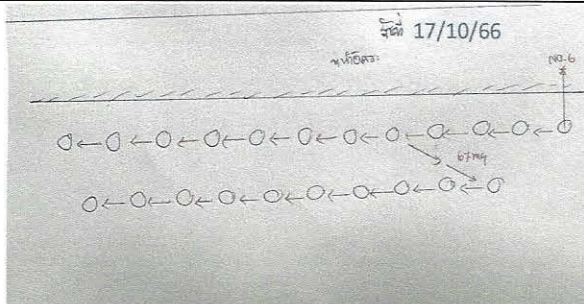 วันที่ 17/10/66
หน้าอิสระ
NO.6
67ms